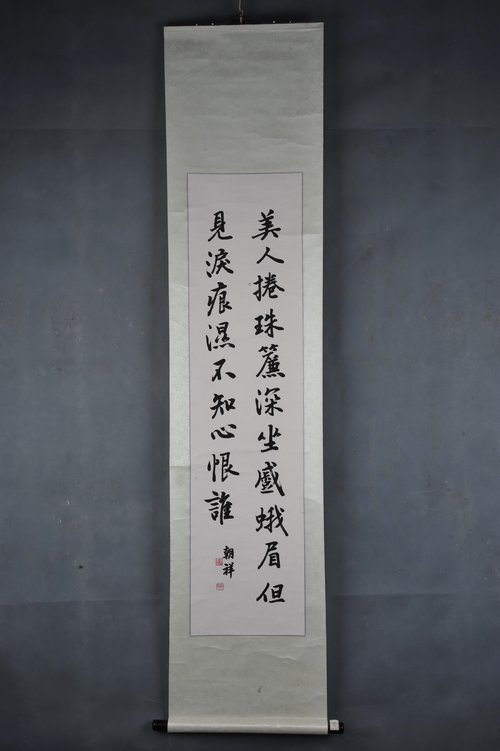 美人捲珠簾深坐感蛾眉但
見淚痕濕不知心恨誰
朝祥